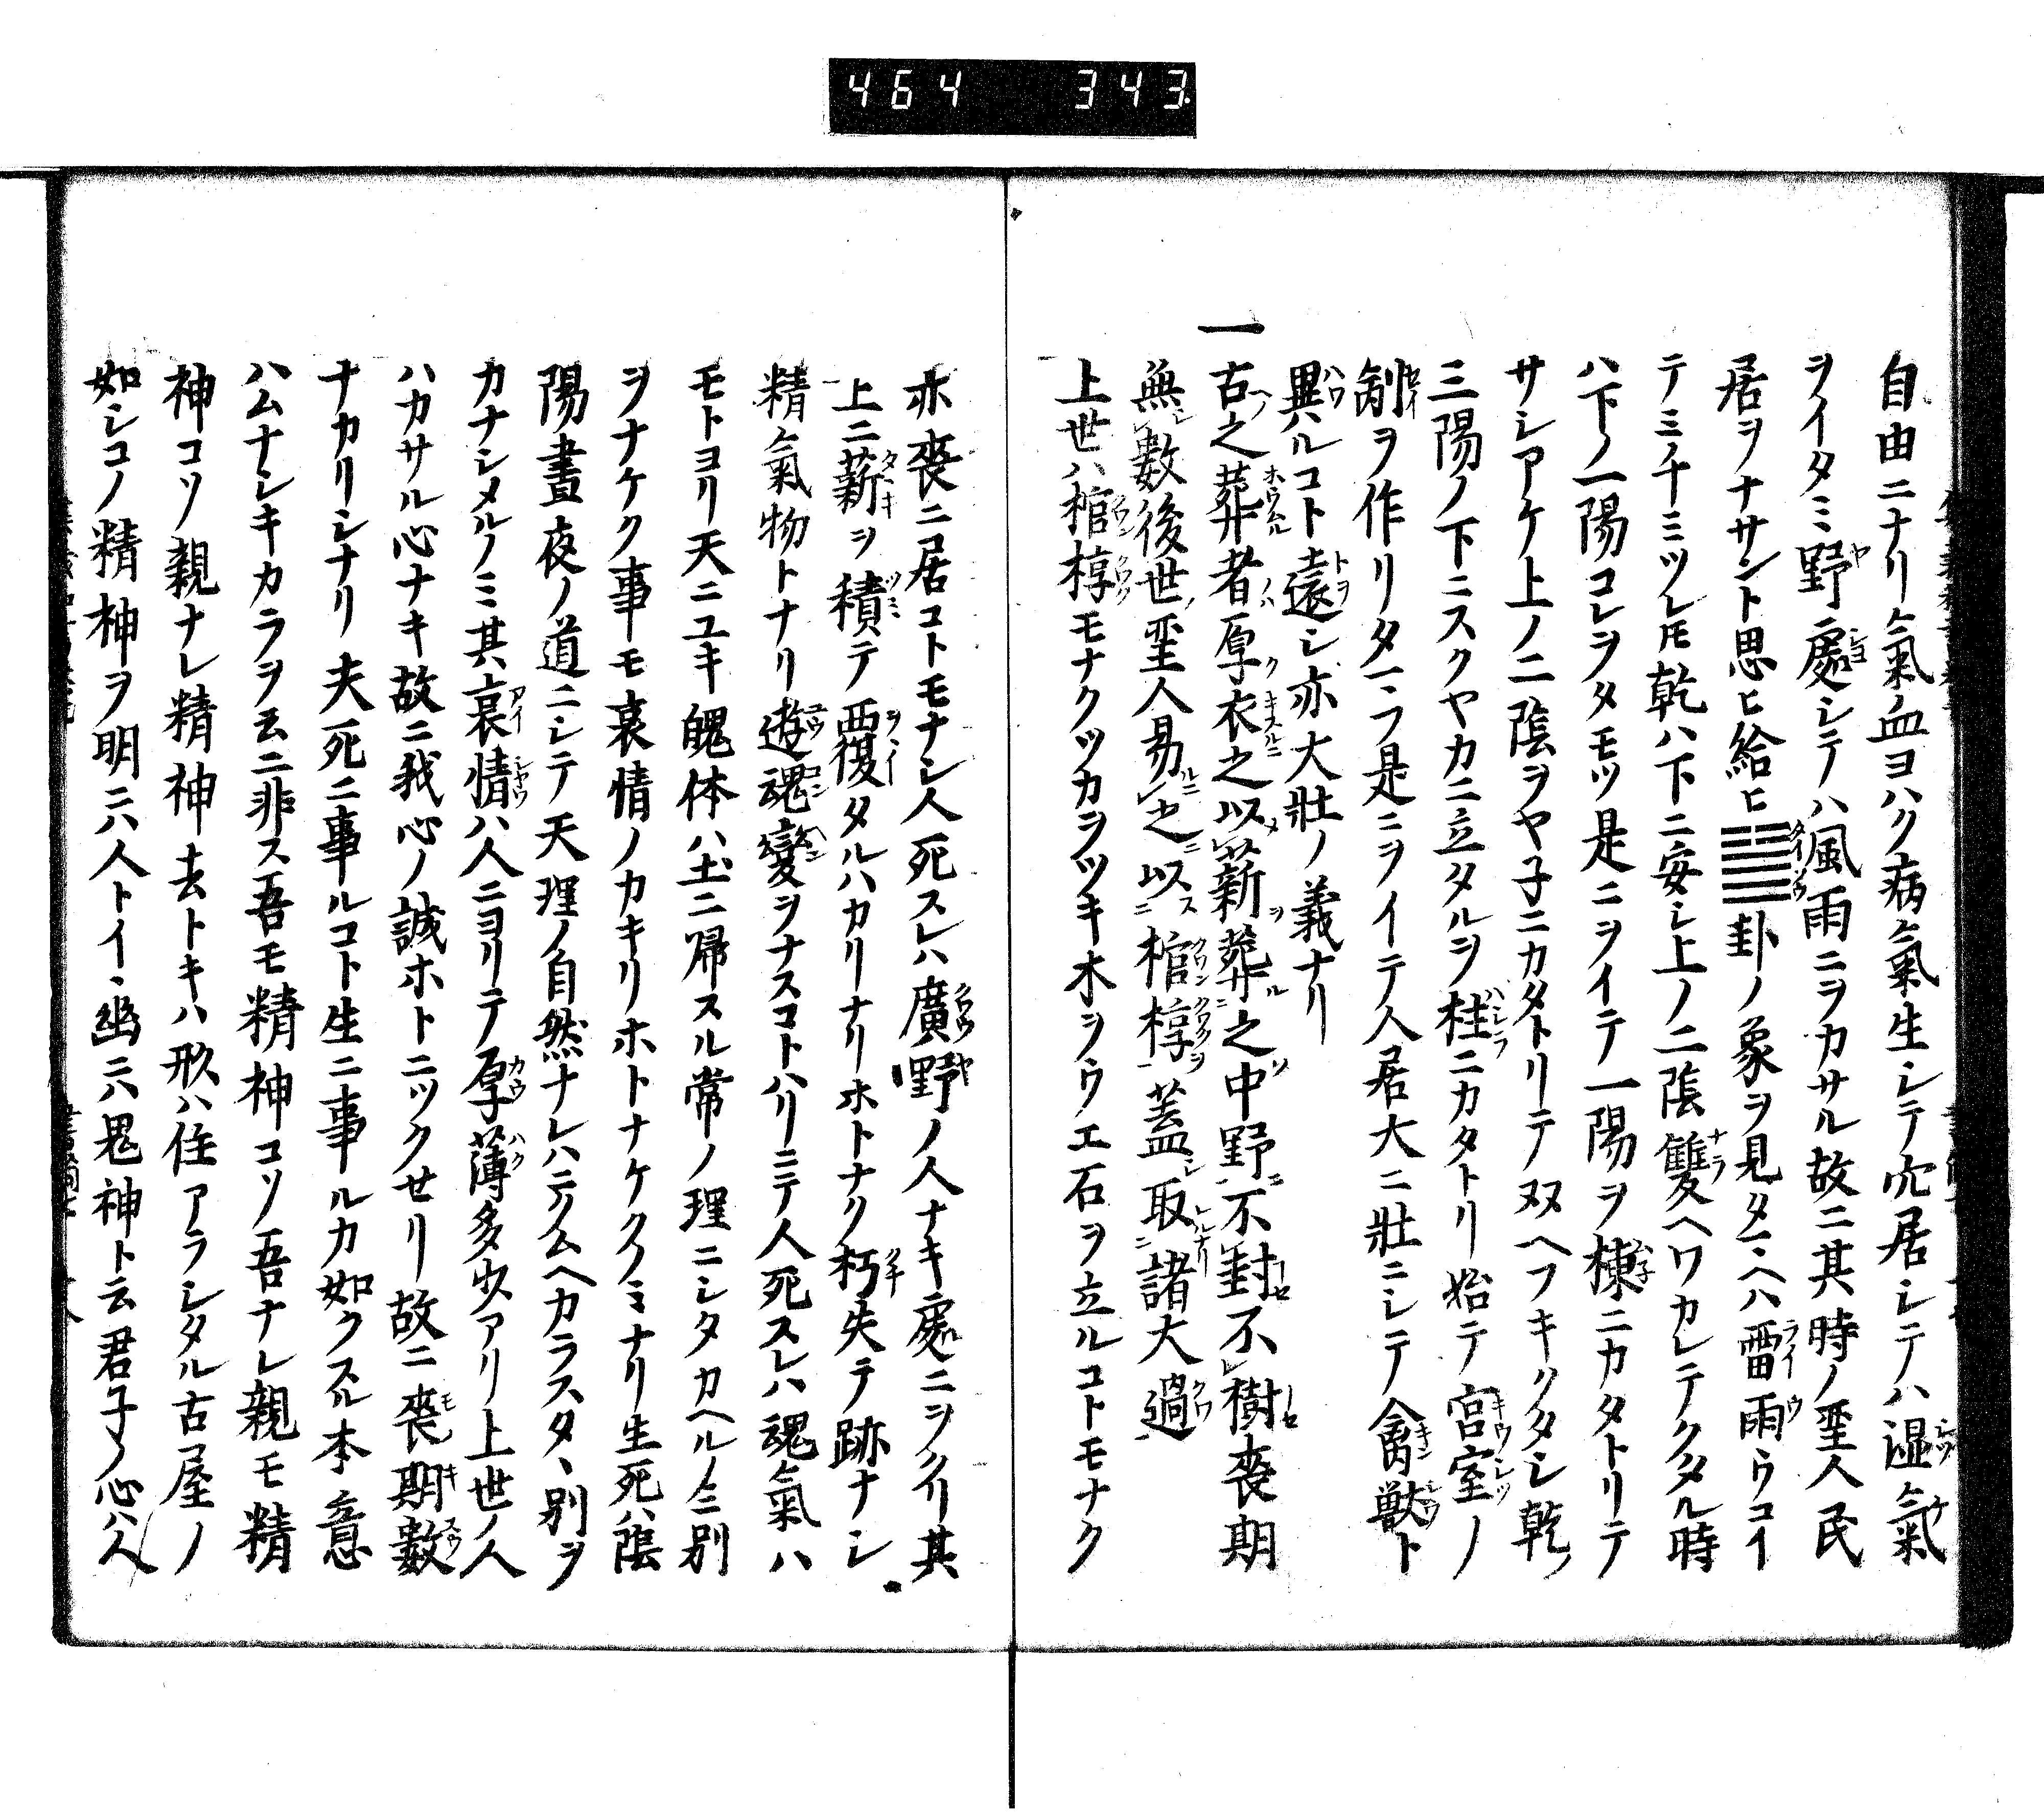 464 343
自由ニナリ氣血ヨハク病氣生シテ穴居シテハ湿氣
ヲイタミ野處シテハ風雨ニヲカサル故ニ其時ノ聖人民
居ヲナサント思ヒ給ヒ䷡卦ノ象ヲ見タマヘハ雷雨ウコイ
テミチミツレトモ乾ハ下ニ安シ上ノ二陰雙ヘワカレテクタル時
ハ下ノ一陽コレヲタモツ是ニヲイテ一陽ヲ棟ニカタトリテ
サシアケ上ノ二陰ヲヤ子ニカタトリテ双ヘフキクタシ乾
三陽ノ下ニスクヤカニ立タルヲ柱ニカタトリ始テ宮室ノ
制ヲ作リタマフ是ニヲイテ人居大ニ壯ニシテ禽獣ト
異ハルコト遠シ亦大壯ノ義ナリ
一古之葬者厚衣之以薪葬之中野不封不樹喪期
無數後世聖人易之以棺椁蓋取諸大過
上世ハ棺椁モナクツカヲツキ木ヲウエ石ヲ立ルコトモナク
亦喪ニ居コトモナシ人死スレハ廣野ノ人ナキ處ニヲクリ其
上ニ薪ヲ積テ覆タルハカリナリホトナク朽失テ跡ナシ
精氣物トナリ遊魂變ヲナスコトハリニテ人死スレハ魂氣ハ
モトヨリ天ニユキ魄体ハ土ニ帰スル常ノ理ニシタカヘルノミ別
ヲナケク事モ哀情ノカキリホトナケクノミナリ生死ハ陰
陽晝夜ノ道ニシテ天理ノ自然ナレハニクムヘカラスタヽ別ヲ
カナシメルノミ其哀情ハ人ニヨリテ厚薄多少アリ上世ノ人
ハカサル心ナキ故ニ我心ノ誠ホトニツクせリ故ニ喪期數
ナカリシナリ夫死ニ事ルコト生ニ事ルカ如クスル本意
ハムナシキカラヲ云ニ非ス吾モ精神コソ吾ナレ親モ精
神コソ親ナレ精神去トキハ形ハ住アラシタル古屋ノ
如シコノ精神ヲ明ニハ人トイヽ幽ニハ鬼神ト云君子ノ心ハ人